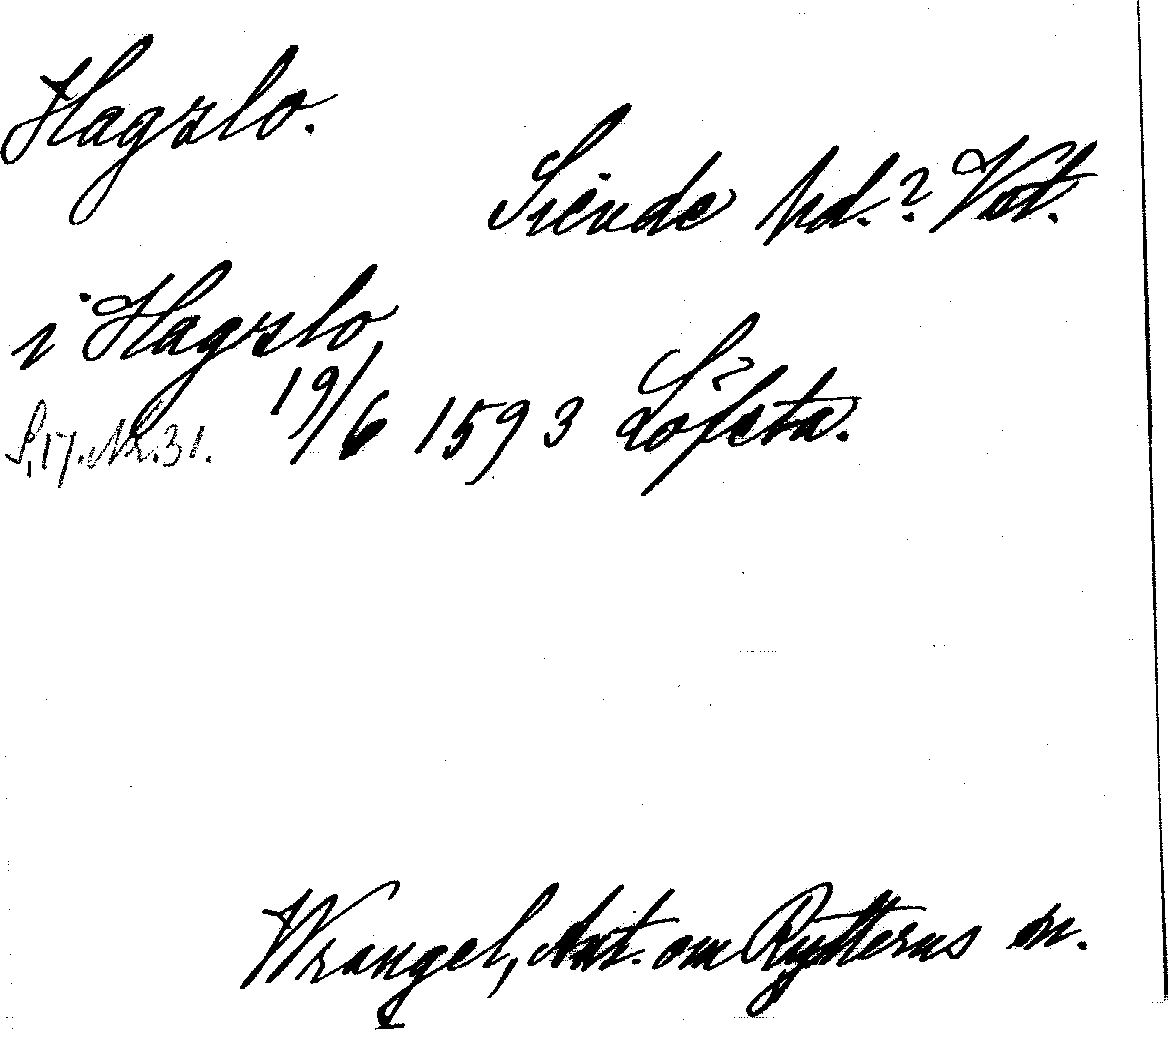 Hagslo.
Siende hd.? Vstm.
i Hagslo
S. 17. Nr. 31. 19/6 1593 Löfsta.
Wrangel, Ant. om Rytterns sn.